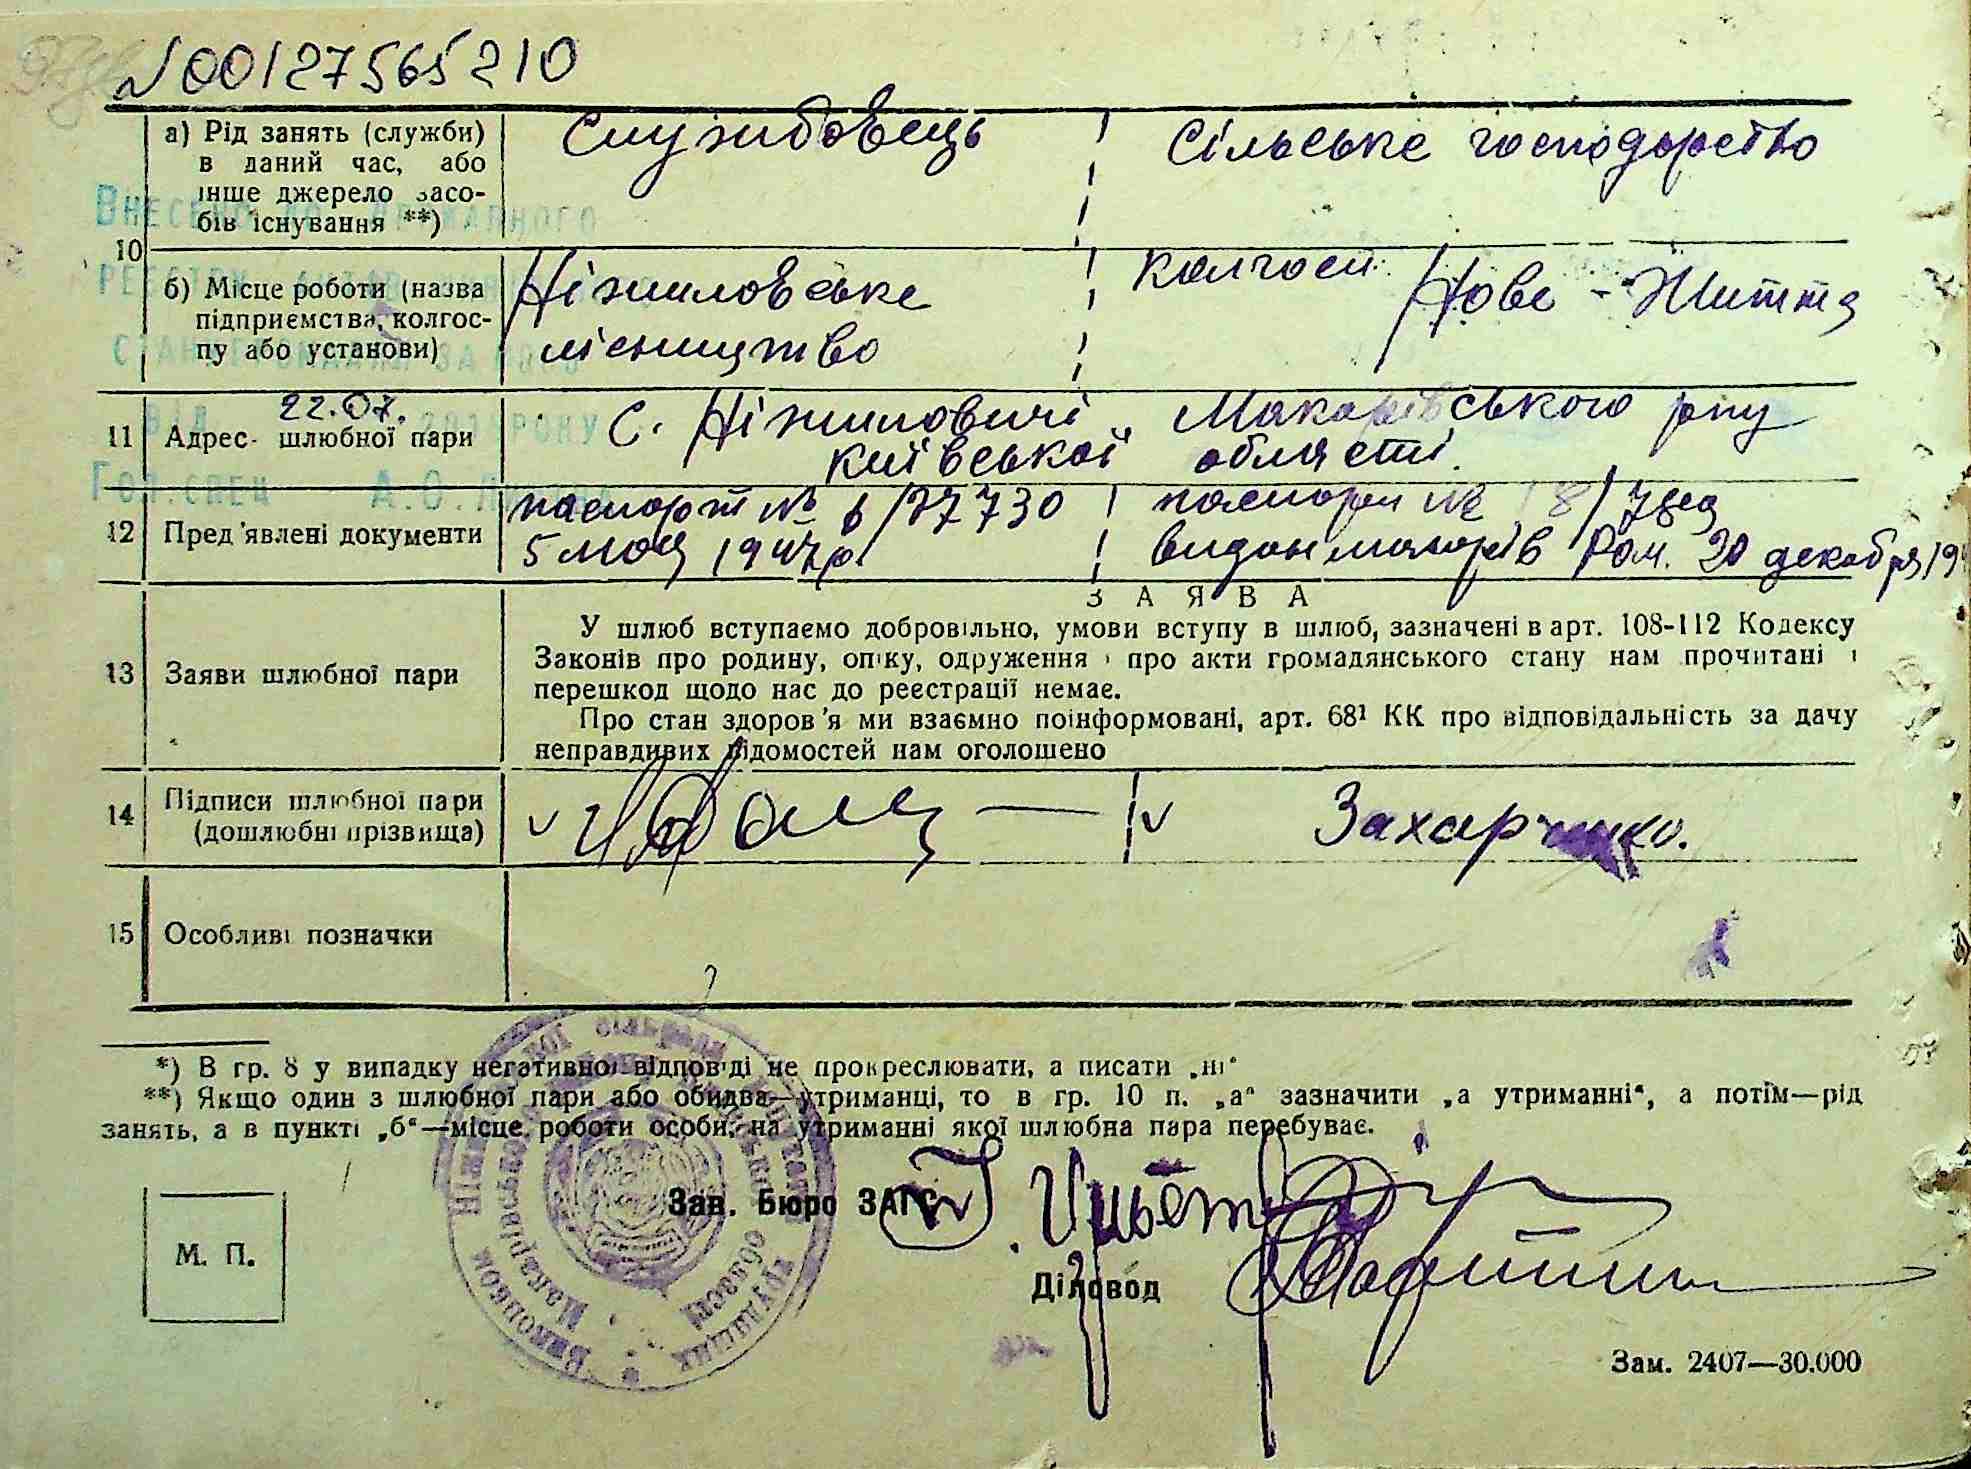 N00127565210
а) Рід занять (служби) в даний час, або інше джерело засобів існування **)
Службовець
Сільське господарство
10
б) Місце роботи (назва підприємства, колгоспу або установи)
Ніжиловське лісництво
колгосп Нове-Життя
ВНЕСЕНО ДО ДЕРЖАВНОГО
РЕЄСТРУ АКТІВ
СТАНУ ГРОМАДЯН ЗА
ВІД 22.07. РОКУ
ГОЛ.СПЕЦ А.О.
11 Адрес шлюбної пари
с. Ніжиловичі Макарівського р-ну
київської області.
12 Пред'явлені документи
паспорт №
5 мая 1947р
паспорт №
видан макарів Ром. 20 декабря 19
ЗАЯВА
13 Заяви шлюбної пари
У шлюб вступаємо добровільно, умови вступу в шлюб, зазначені в арт. 108-112 Кодексу
Законів про родину, опіку, одруження і про акти громадянського стану нам прочитані і
перешкод щодо нас до реєстрації немає.
Про стан здоров'я ми взаємно поінформовані, арт. 68¹ КК про відповідальність за дачу
неправдивих відомостей нам оголошено
14 Підписи шлюбної пари
(дошлюбні прізвища)
Захарченко.
15 Особливі позначки
*) В гр. 8 у випадку негативної відповіді не прокреслювати, а писати „ні“
**) Якщо один з шлюбної пари або обидва—утриманці, то в гр. 10 п. „а“ зазначити „а утриманні“, а потім—рід
занять, а в пункті „б“—місце роботи особи, на утриманні якої шлюбна пара перебуває.
М. П.
Зав. Бюро ЗАГС
Діловод
Виконком
депутатів трудящих
Макарівського
області
Зам. 2407—30.000